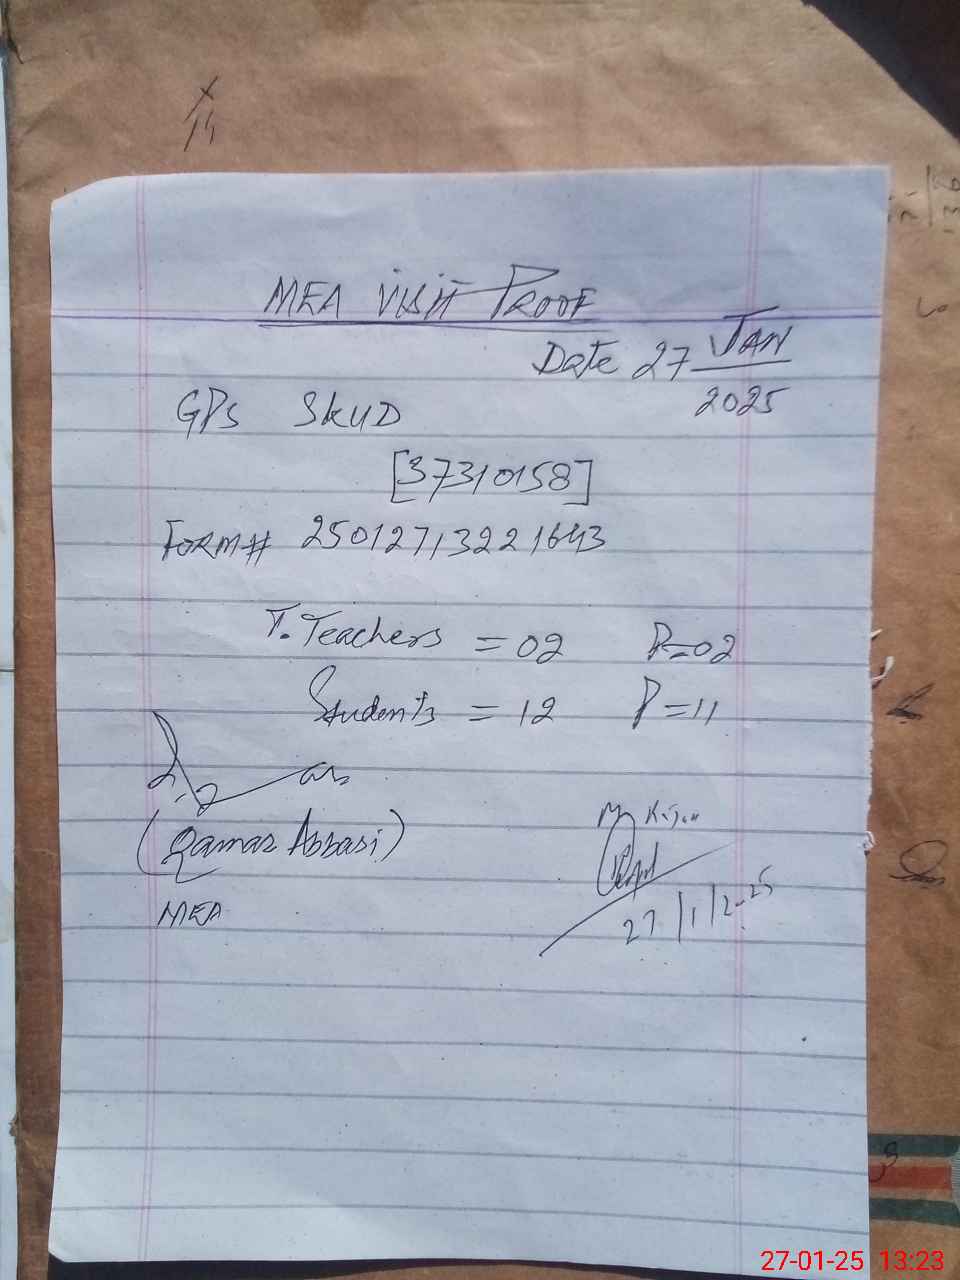 MEA VISIT PROOF
Date 27 JAN
2025
GPS SKUD
[37310158]
FORM# 25012713221643
T. Teachers = 02 P=02
Students = 12 P=11
(Qamar Abbasi)
MEA
27/1/2025
27-01-25 13:23